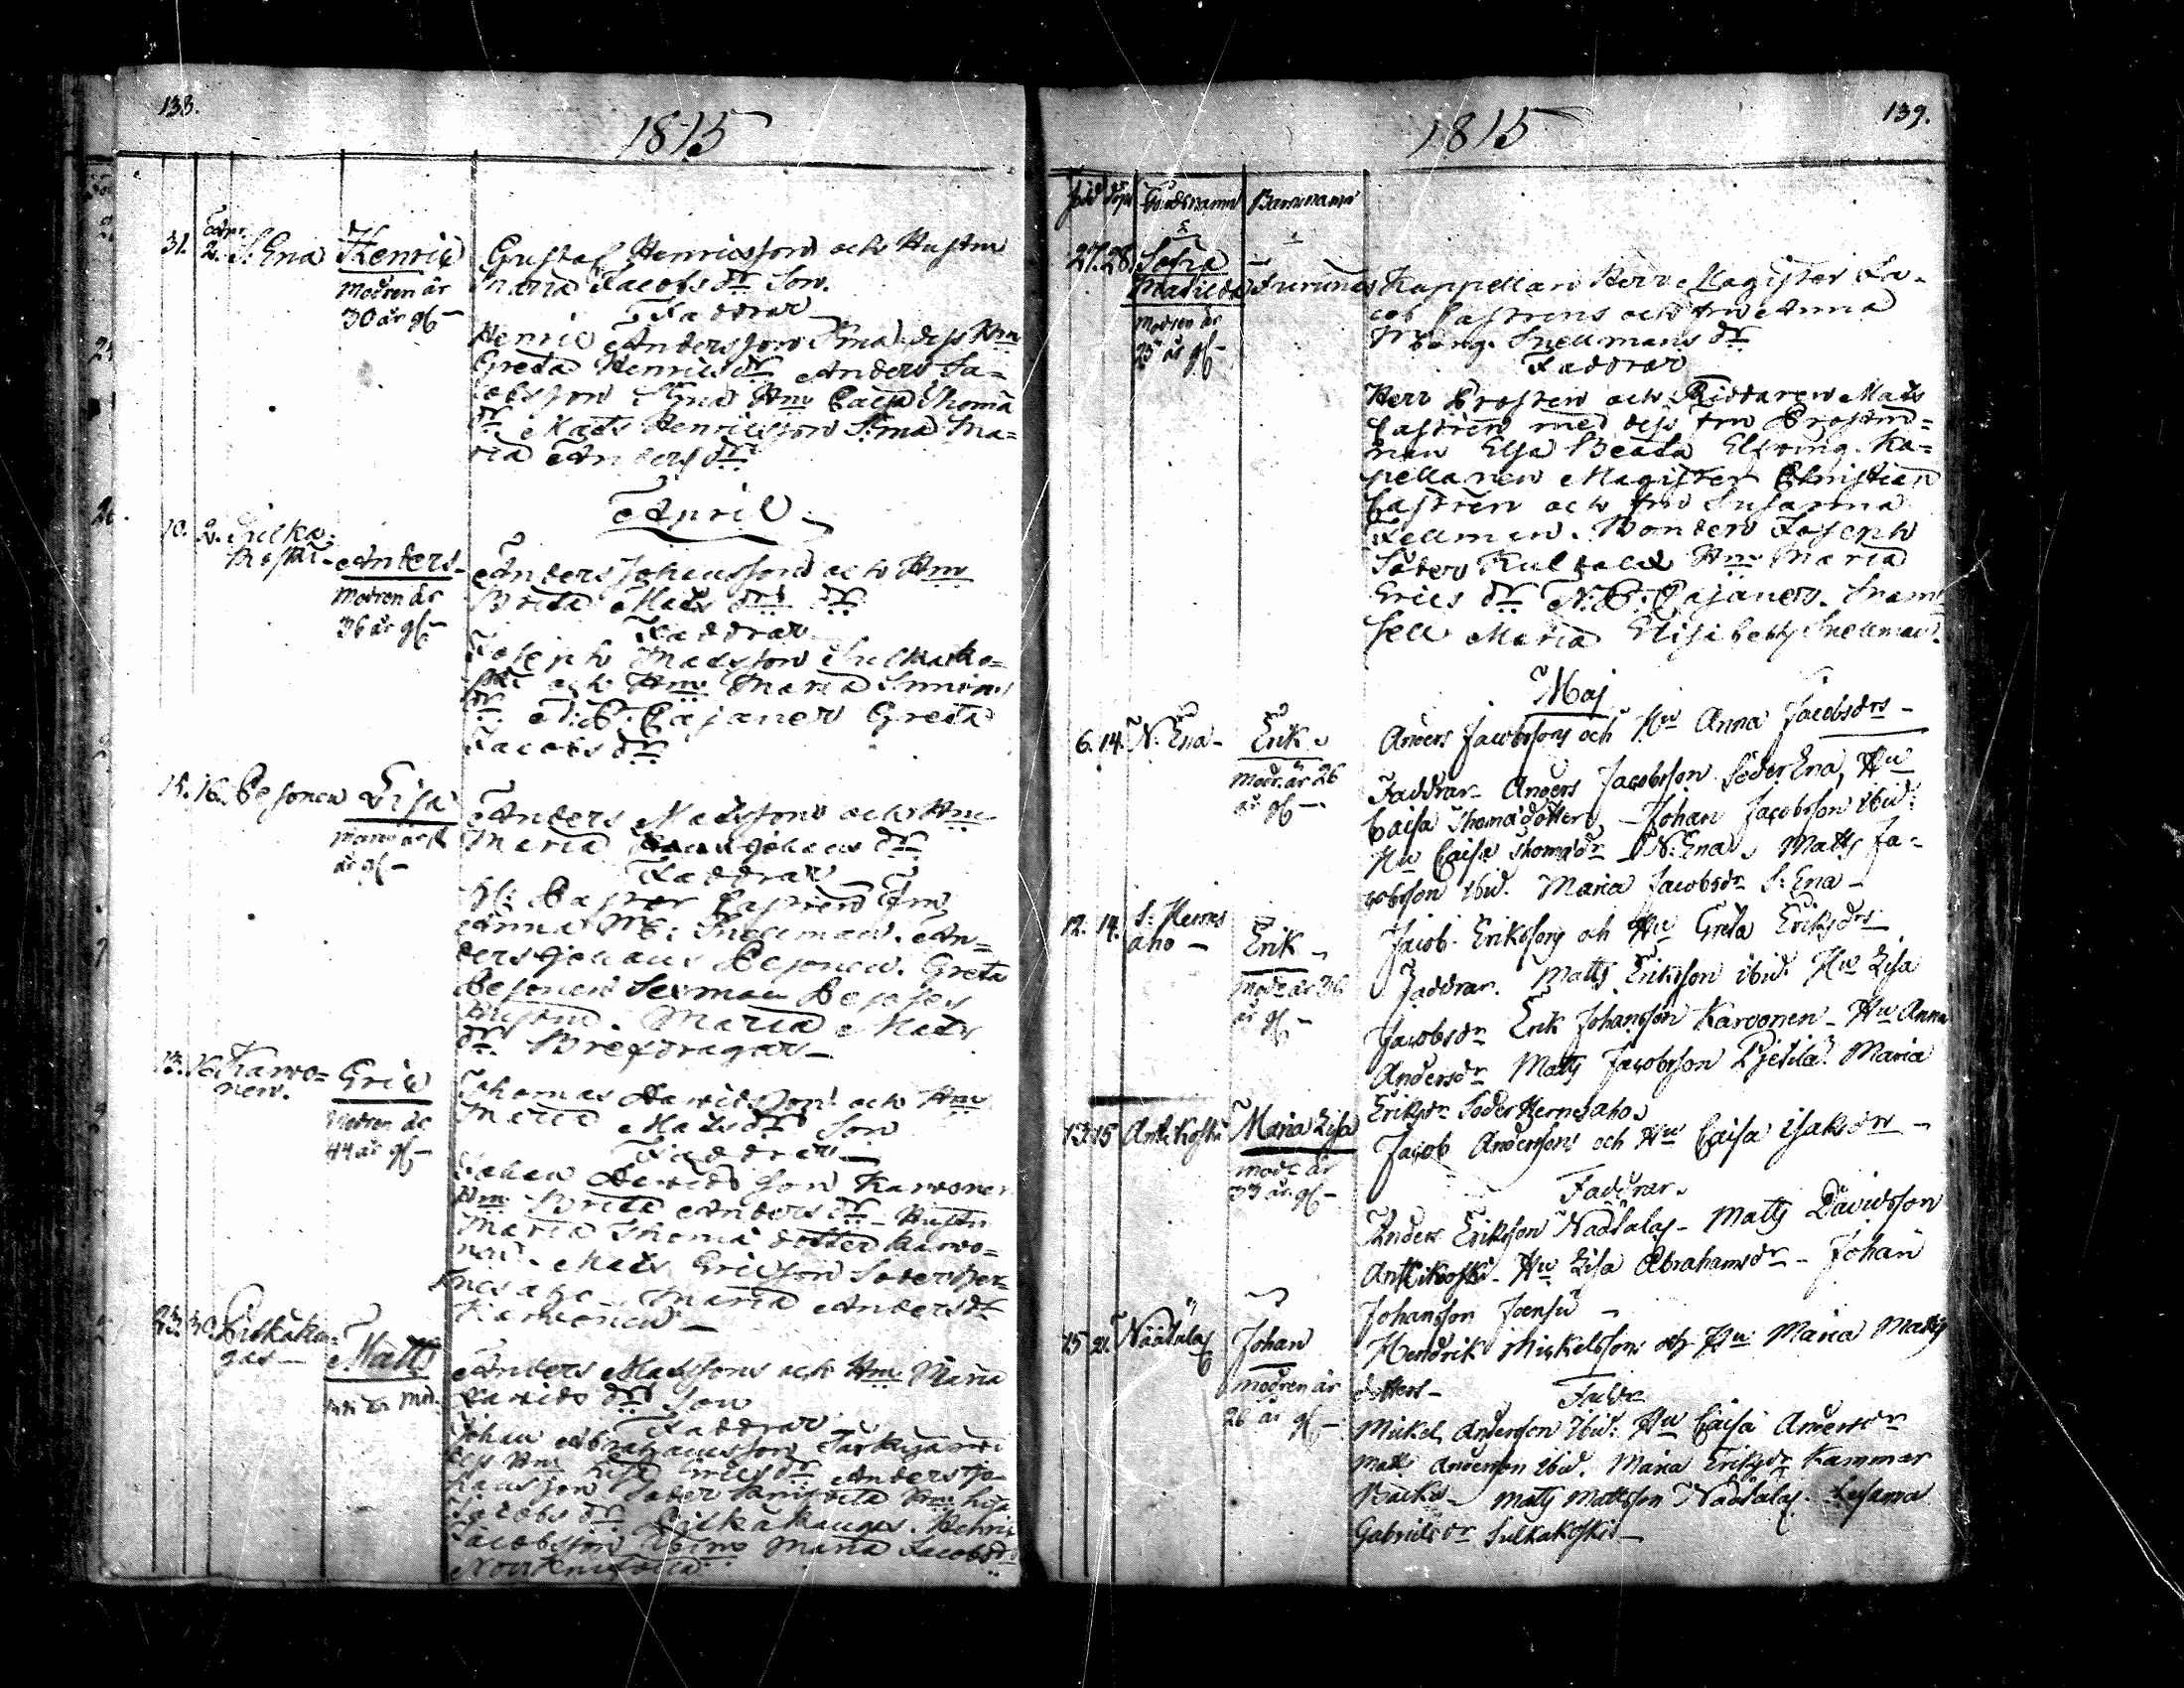 138.
1815
31.
Apr.
2.
S. Ena
Henric
Modren är
30 år gl –
Gustaf Henricsson och Hustru
Maria Jacobs dr Son.
Faddrar
Henric Andersson Ena dess Hu
Greta Henrics dr Anders Ja=
cobsson S. Ena Hu Caisa Thoma
dr Mats Henricsson S. Ena Ma=
ria Anders dr
April
10.
2.
Sulka=
koski –
Anders –
Modren är
36 år gl –
Anders Johansson och Hu
Brita Mats drs dr
Faddrar
Joseph Matsson Sulkako=
ski och Hu Maria Simons
dr N: B. Cajaner Greta
Jacobs dr
15.
16.
Pesonen
Lisa
år gl –
Anders Matsson och Hu
Maria Johans dr
Faddrar
Hr Pastor Castren Fru
Anna Mg: Snellman. An=
ders Johans Pesonen. Greta
Pesonen
Hustru. Maria Mats
dr. Brefdragar –
13.
16.
Karvo=
nen.
Eric
Modren är
44 år gl –
Thomas Davidsson och Hu
Maria Mats dr Son
Faddrar –
Johan Davidsson Karvonen
Hu Brita Anders dr – Hustru
Maria Thoma dotter Karvo=
nen. Mats Ericsson Söder Her=
nesaho – Maria Anders dr
Karvonen –
23.
30.
Pitkäkan=
gas –
Matts
Anders Matssons och Hu Maria
Davids drs Son
Faddrar
Johan Abrahamsson Särkijärvi
dess Hu Lisa Erics dr Anders Jo=
hansson Söder Hu Lisa
Jacobs dr Pitkäkangas. Henric
Jacobsson ibm Maria Jacobs dr
Norr
139.
1815
Född
Döpt
Gårdsnamn
Barnnamn
27.
28.
Sofia
Matilda
Modren är
23 år gl –
Kappellan Herr Magister Ja=
cob Castrens och fru Anna
Mbarg. Snellmans dr
Faddrar
Herr Prosten och Riddaren Mats
Castren med dess fru Prostin=
nan Elsa Beata Elfving. Ka=
pellanen Magister Christian
Castren och fru Susanna
Fellman. Bonden Joseph
Söder Hu Maria
Erics dr N. B. Cajaners. Mam
sell Maria Elisabeth Snellman.
Maj
6.
14.
N. Ena –
Erik
Modr. är 26
år gl –
Anders Jacobssons och Hu Anna Jacobsdrs –
Faddrar – Anders Jacobsson Söder Ena, Hu
Caisa Thomädotter – Johan Jacobsson ibid:
Hu Caisa Thomädr – N. Ena – Matts Ja=
cobsson ibid. Maria Jacobsdr S: Ena –
12.
14.
S: Hernes
aho –
Erik –
Modr är 36
år gl –
Jacob Erikssons och Hu Greta Eriksdrs
Faddrar. Matts Eriksson ibid. Hu Lisa
Jacobsdr Erik Johansson Karvonen – Hu Anna
Andersdr Matts Jacobsson Pjetilä. Maria
Eriksdr Söder Hernesaho
13.
15
Anttikoski
Maria Lisa
Modr är
33 år gl –
Jacob Anderssons och Hu Caisa Isaksdrs –
Faddrar.
Anders Eriksson Näätälas – Matts Davidsson
Anttikoski – Hu Lisa Abrahamsdr – Johan
Johansson Joensu –
15
21.
Näätälas
Johan
Modren är
26 år gl –
Hendrik Mickelssons och Hu Maria Matts
dotters –
Faddr
Mickel Andersson ibid: Hu Caisa Andersdr
Matts Andersson ibid. Maria Eriksdr Kammar
Backa – Matts Mattsson Näätälas. Susanna
Gabrielsdr Sulkakoski –